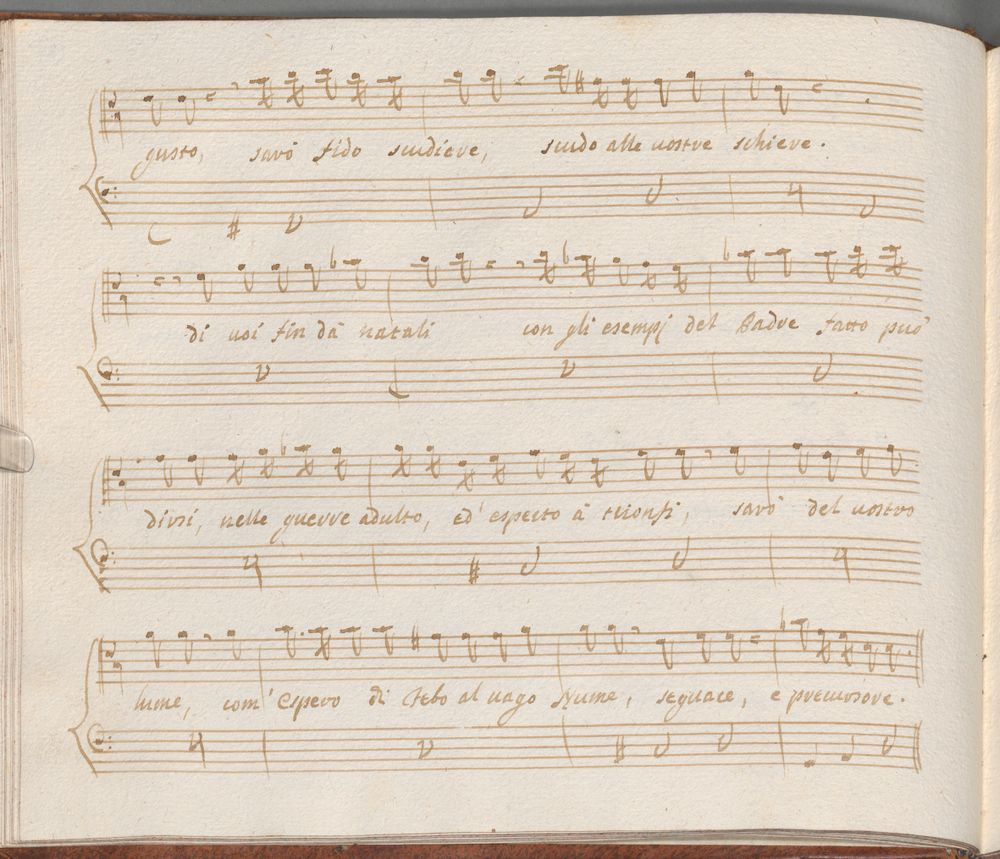 gusto, sarò fido scudiere, scudo alle vostre schiere.
di voi fin dà natali con gli esempj del Padre fatto può
dirsi, nelle guerre adulto, ed' esperto à trionfi, sarò del vostro
lume, com' Espero di Febo al vago Nume, seguace, e precursore.